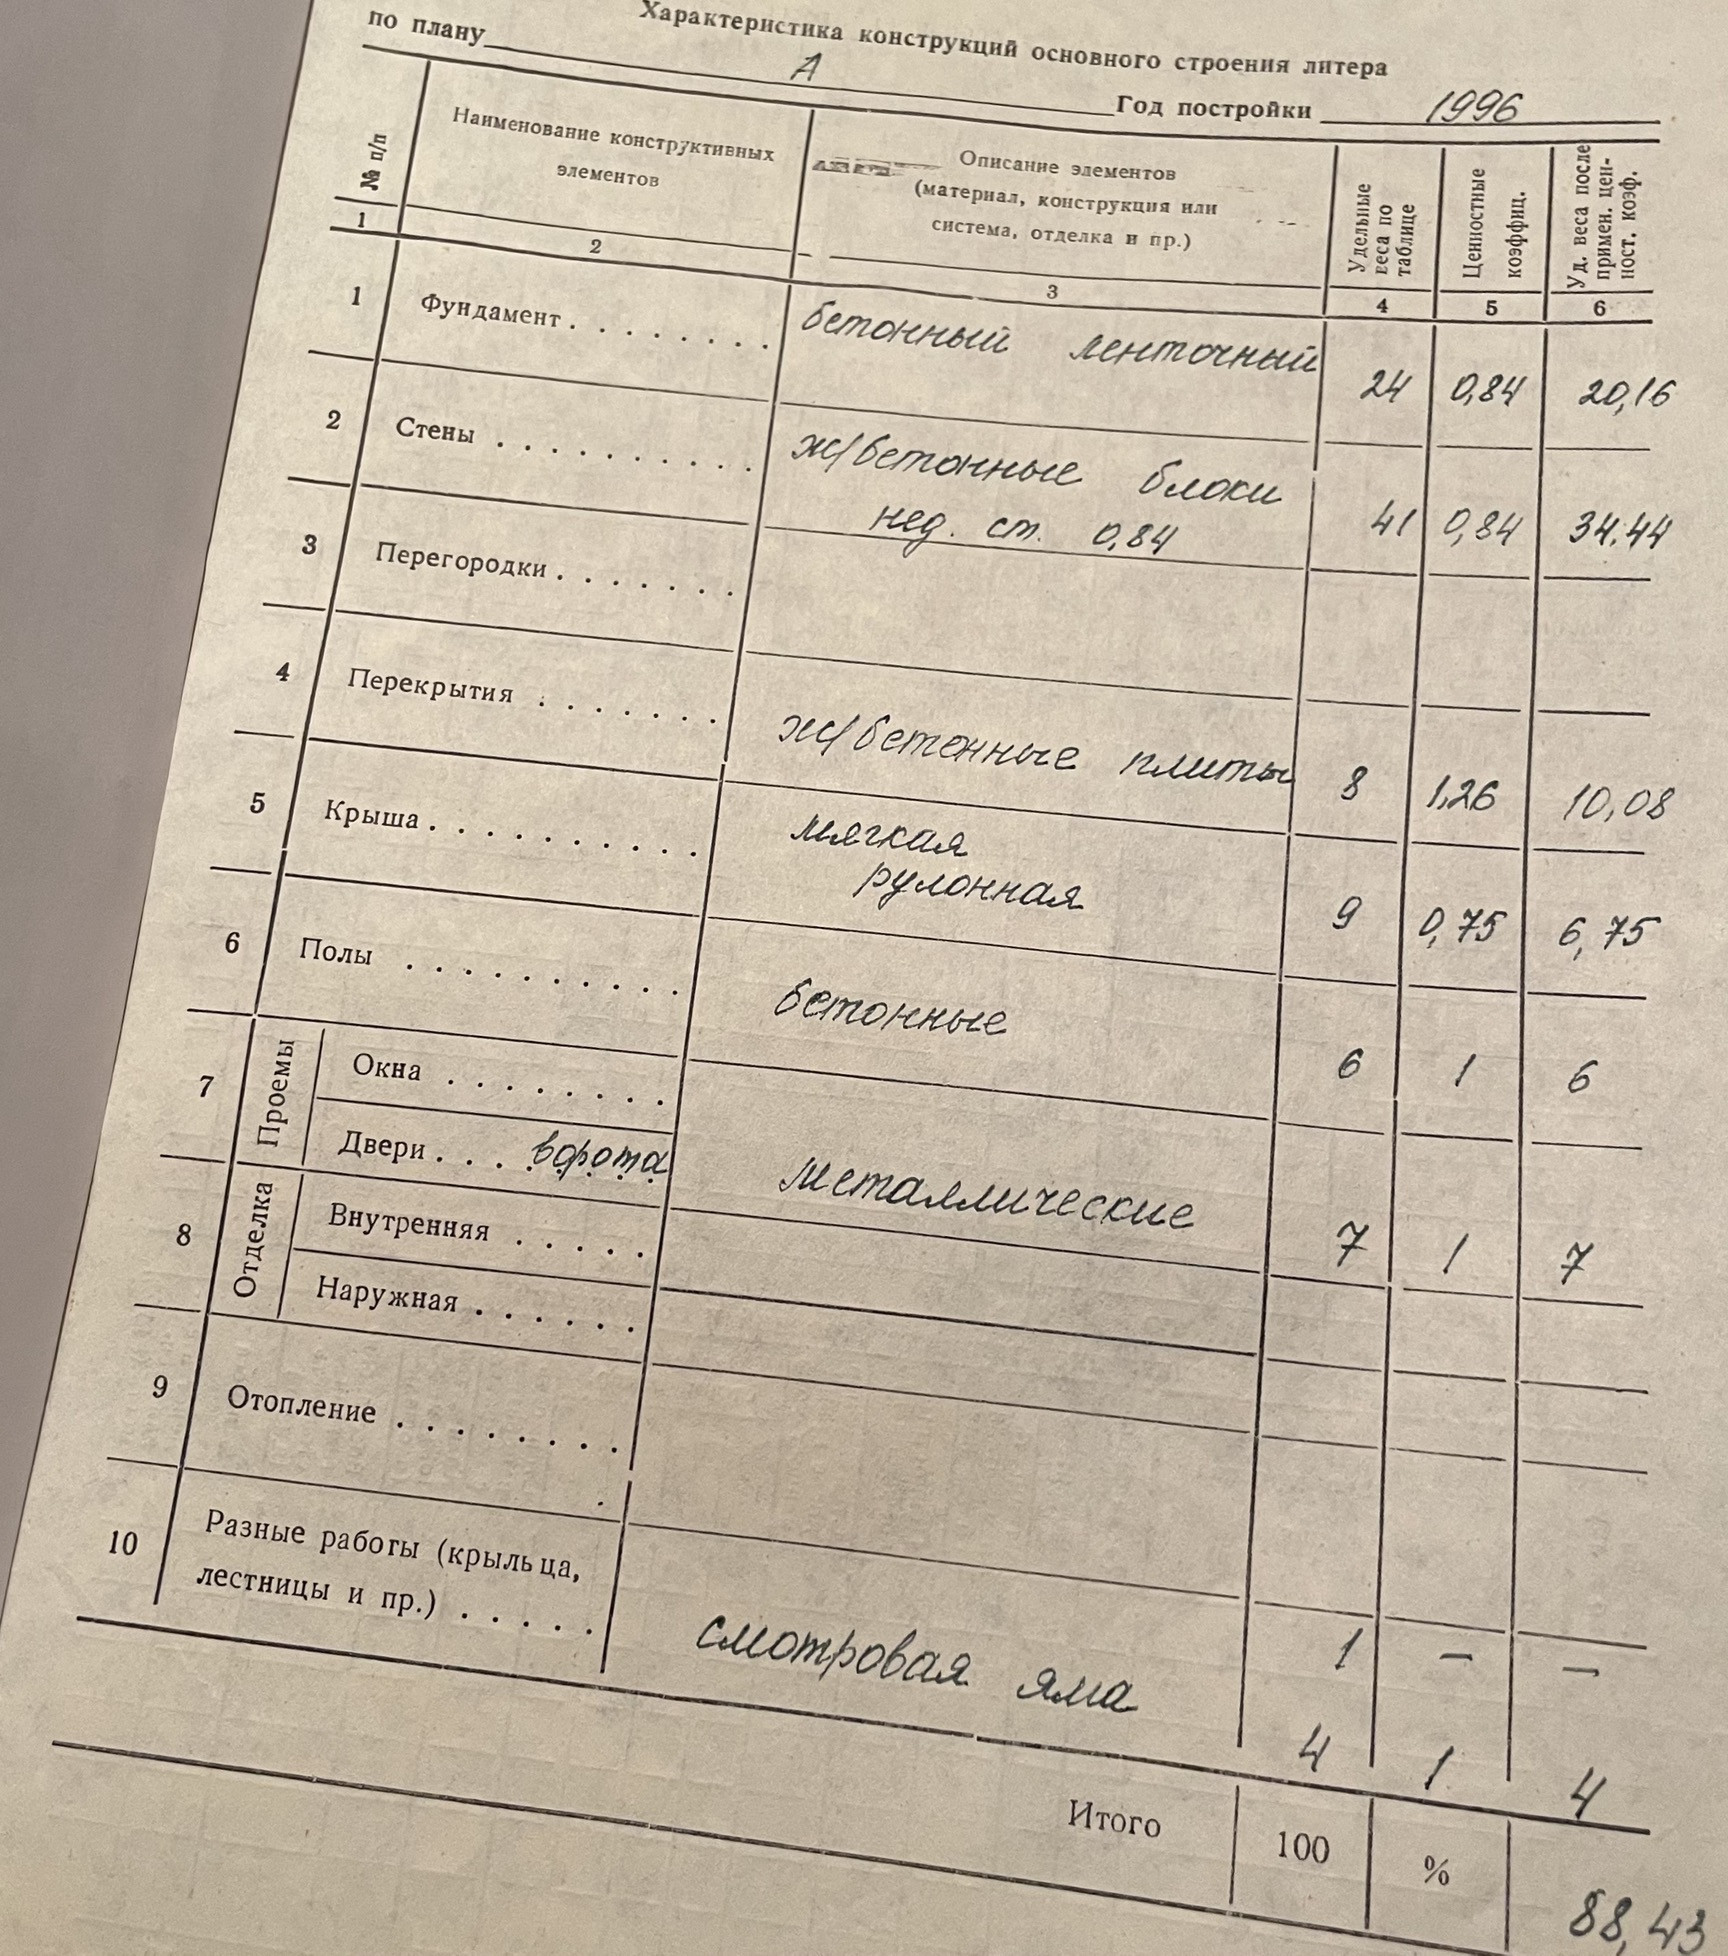 Характеристика конструкций основного строения литера
по плану А Год постройки 1996
№ п/п Наименование конструктивных элементов Описание элементов (материал, конструкция или система, отделка и пр.) Удельные веса по таблице Ценностные коэффиц. Уд. веса после примен. ценност. коэф.
1 2 3 4 5 6
1 Фундамент бетонный ленточный 24 0,84 20,16
2 Стены ж/бетонные блоки
нед. ст. 0,84 41 0,84 34.44
3 Перегородки
4 Перекрытия ж/бетонные плиты 8 1,26 10,08
5 Крыша мягкая
рулонная 9 0,75 6,75
6 Полы бетонные 6 1 6
7 Проемы Окна
Двери ворота металлические 7 1 7
8 Отделка Внутренняя
Наружная
9 Отопление 1 – –
10 Разные работы (крыльца,
лестницы и пр.) смотровая яма 4 1 4
Итого 100 % 88,43